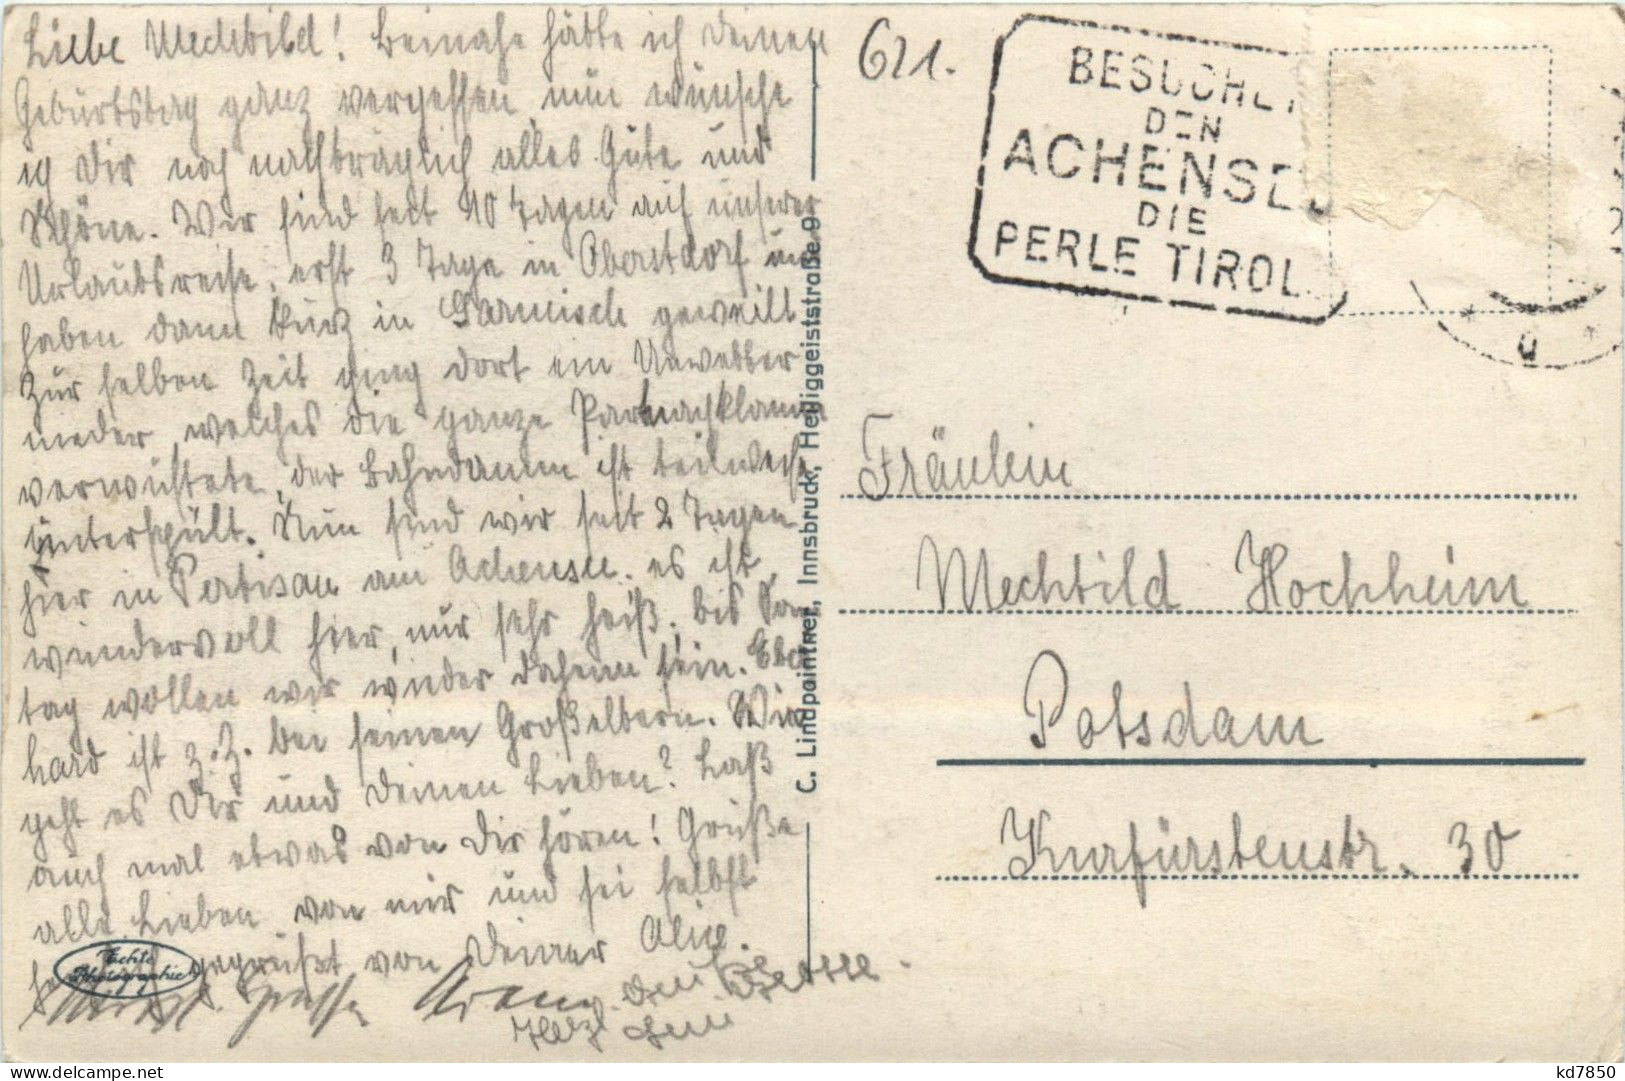 Liebe Mechtild! Beinahe hätte ich Deinen
Geburtstag ganz vergessen, nun wünsche
ich Dir noch nachträglich alles Gute und
Schöne. Wir sind seit 10 Tagen auf unserer
Urlaubsreise, erst 3 Tage in Oberstdorf und
haben dann kurz in Garmisch geweilt
Zur selben Zeit ging dort ein Unwetter
nieder, welches die ganze Partnachklamm
verwüstete, der Bahndamm ist teilweise
unterspült. Nun sind wir seit 2 Tagen
hier in Pertisau am Achensee. es ist
wundervoll hier, nur sehr heiß. bis Sonn
tag wollen wir wieder daheim sein. Eber
hard ist z. Z. bei seinen Großeltern. Wie
geht es Dir und Deinen Lieben? Laß
auch mal etwas von Dir hören! Grüße
alle Lieben von mir und sei selbst
gegrüßt von Deiner
Echte
Photographie
C. Lindpaintner, Innsbruck, Heiliggeiststraße 9
621.
BESUCHET
DEN
ACHENSEE
DIE
PERLE TIROL
Fräulein
Mechtild Hochheim
Potsdam
Kurfürstenstr. 30
kd7850